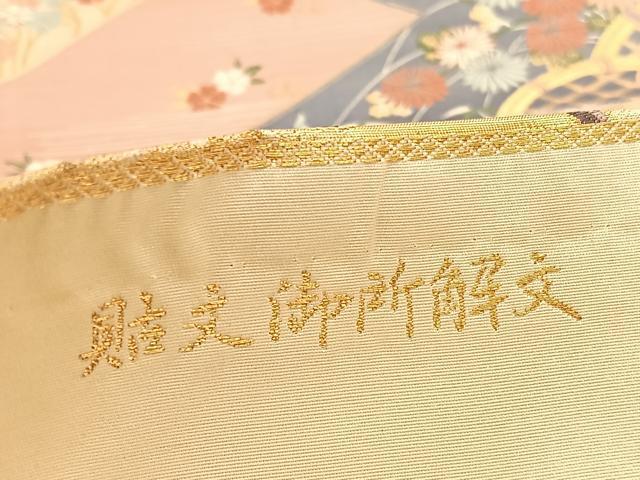 貼文御所解文